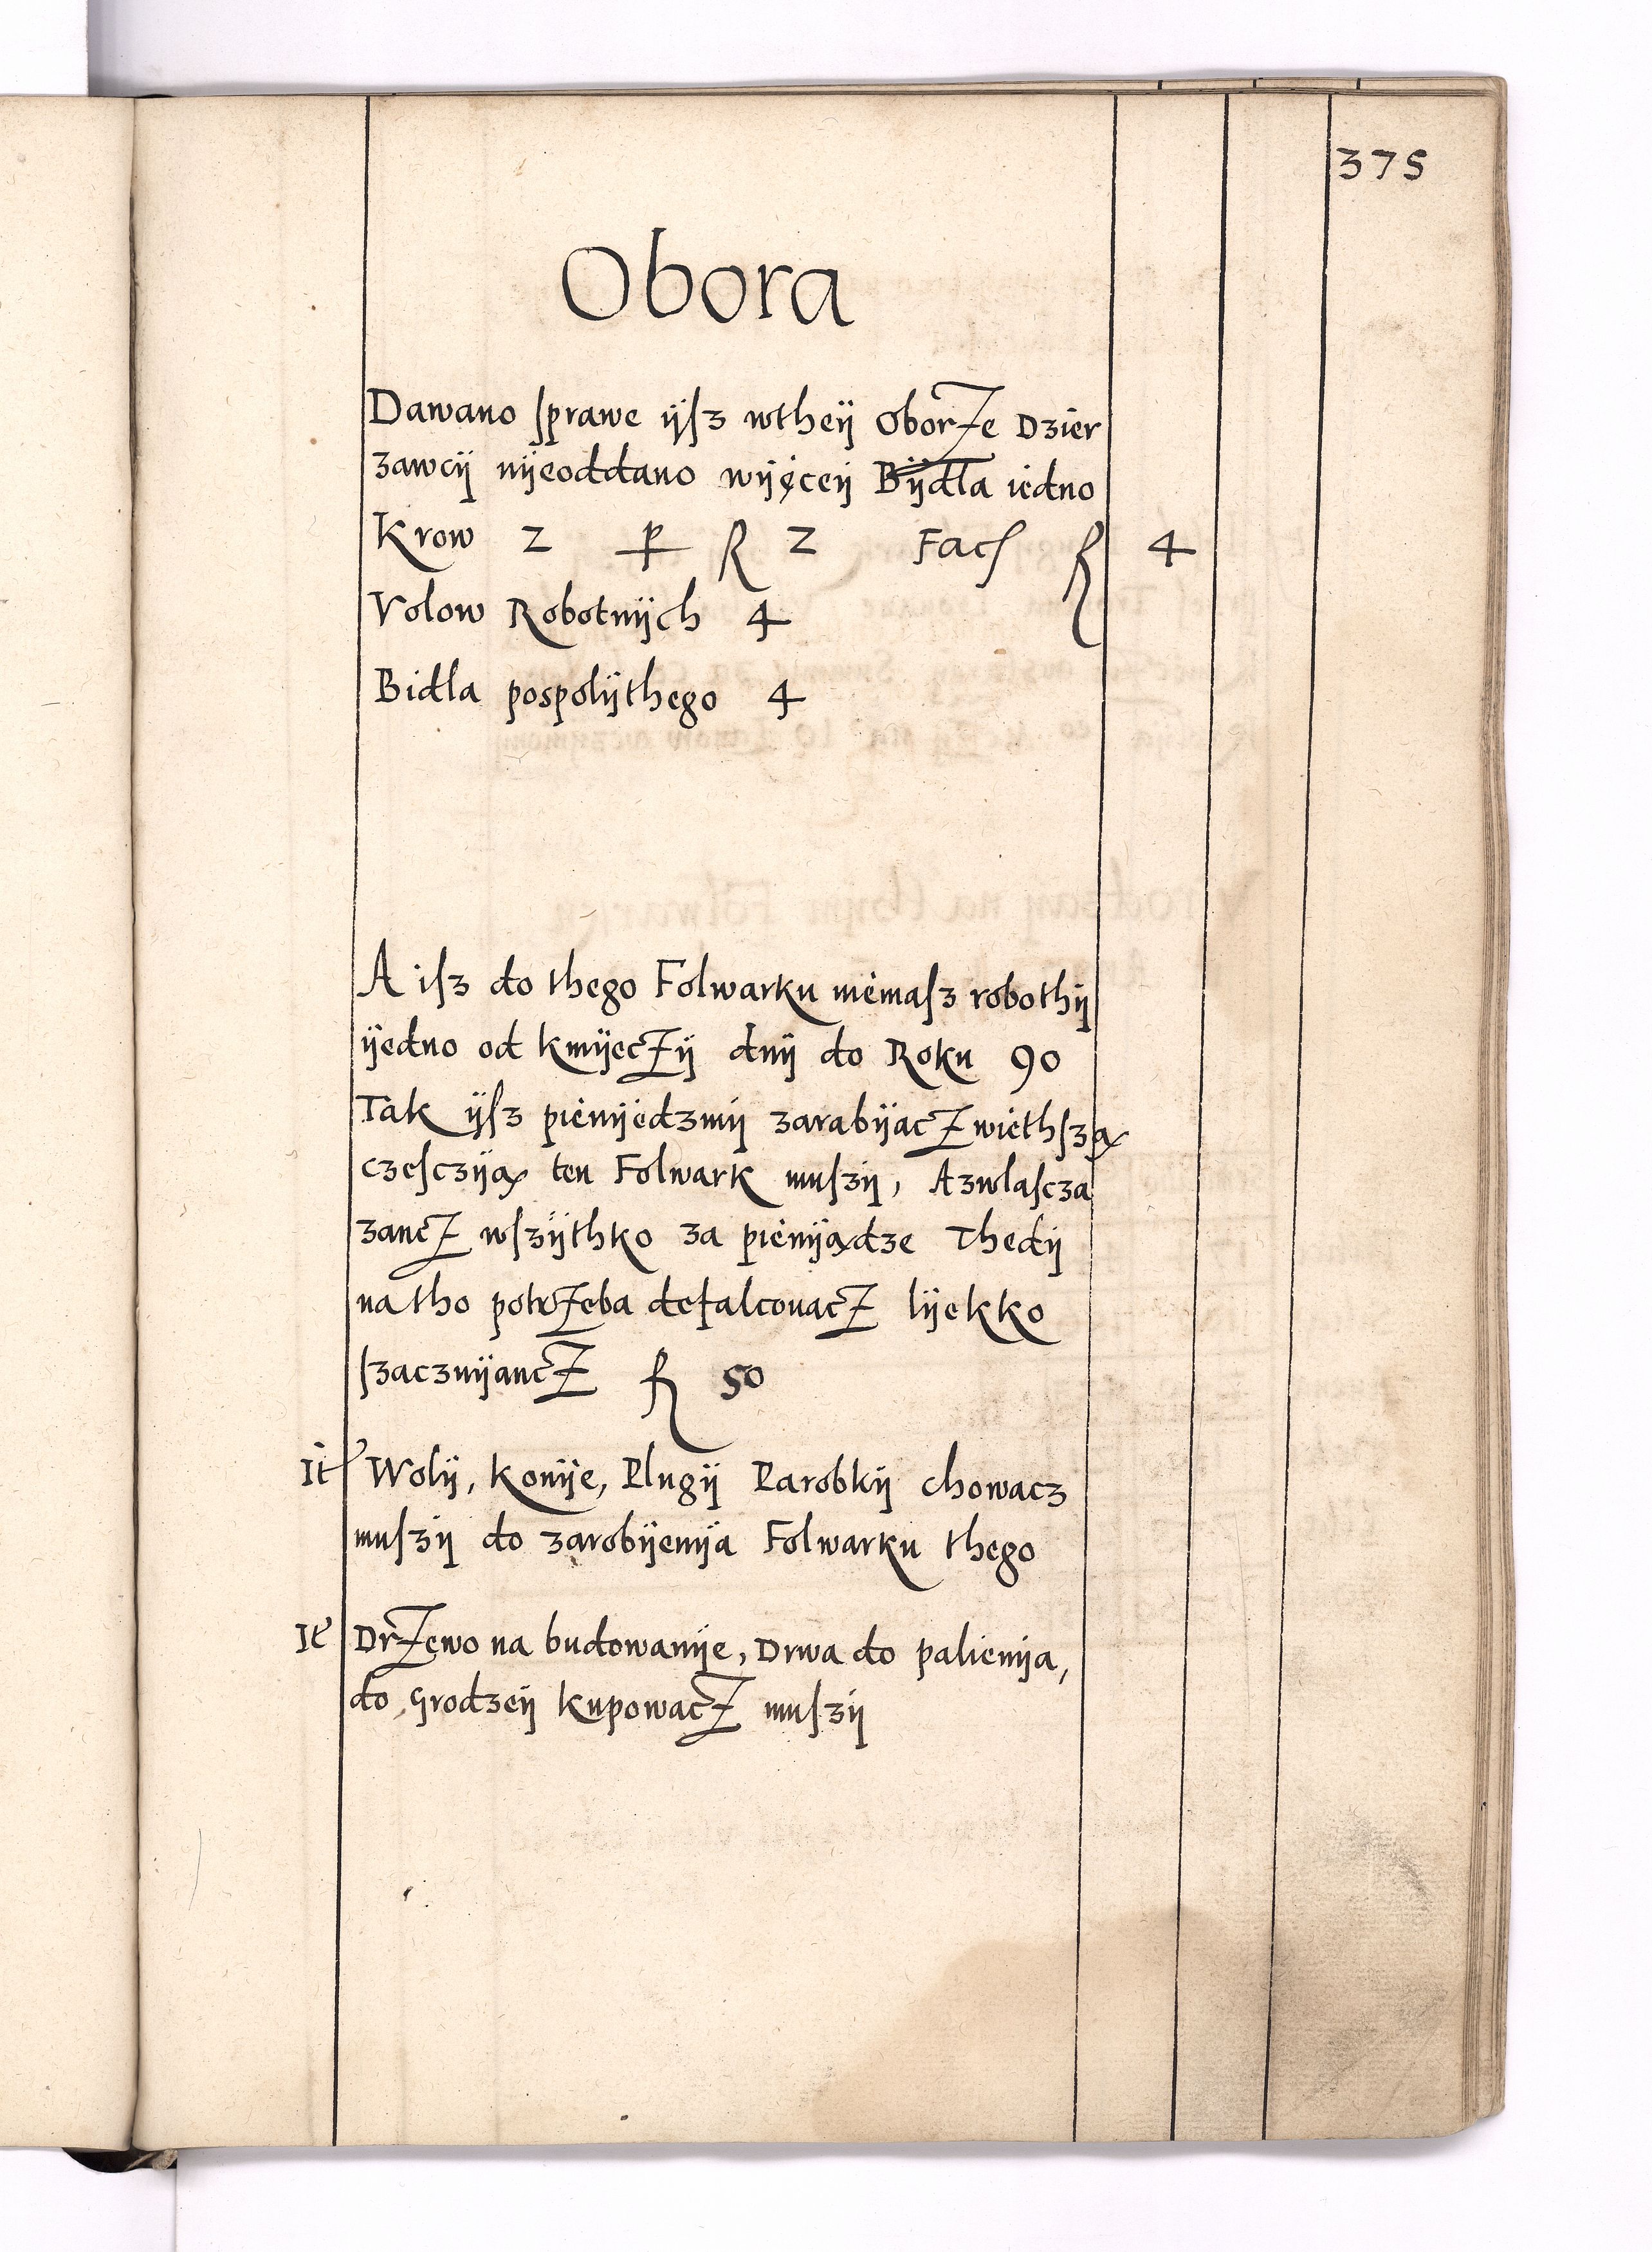 375
Obora
Dawano sprawe ÿsz wtheÿ Oborze Dzier
zawcÿ nÿeoddano wÿęceÿ Bÿdla iedno
Krow 2 P fl 2 Facs fl 4
Volow Robotnÿch 4
Bidla pospolÿthego 4
A isz do thego Folwarku niemasz robothÿ
ÿedno od kmÿeczÿ dnÿ do Roku 90
Tak ÿsz pienÿedzmÿ zarabÿacz wiethszą
czesczÿą ten Folwark muszÿ, Azwlascza
zancz wszÿthko za pienÿądze Thedÿ
na tho potrzeba defalcouacz lÿekko
szacznÿancz fl 50
It Wolÿ, Konÿe, Plugÿ Parobkÿ chowacz
muszÿ do zarobÿenÿa Folwarku thego
It Drzewo na budowanÿe, Drwa do palienÿa,
do Grodzeÿ kupowacz muszÿ